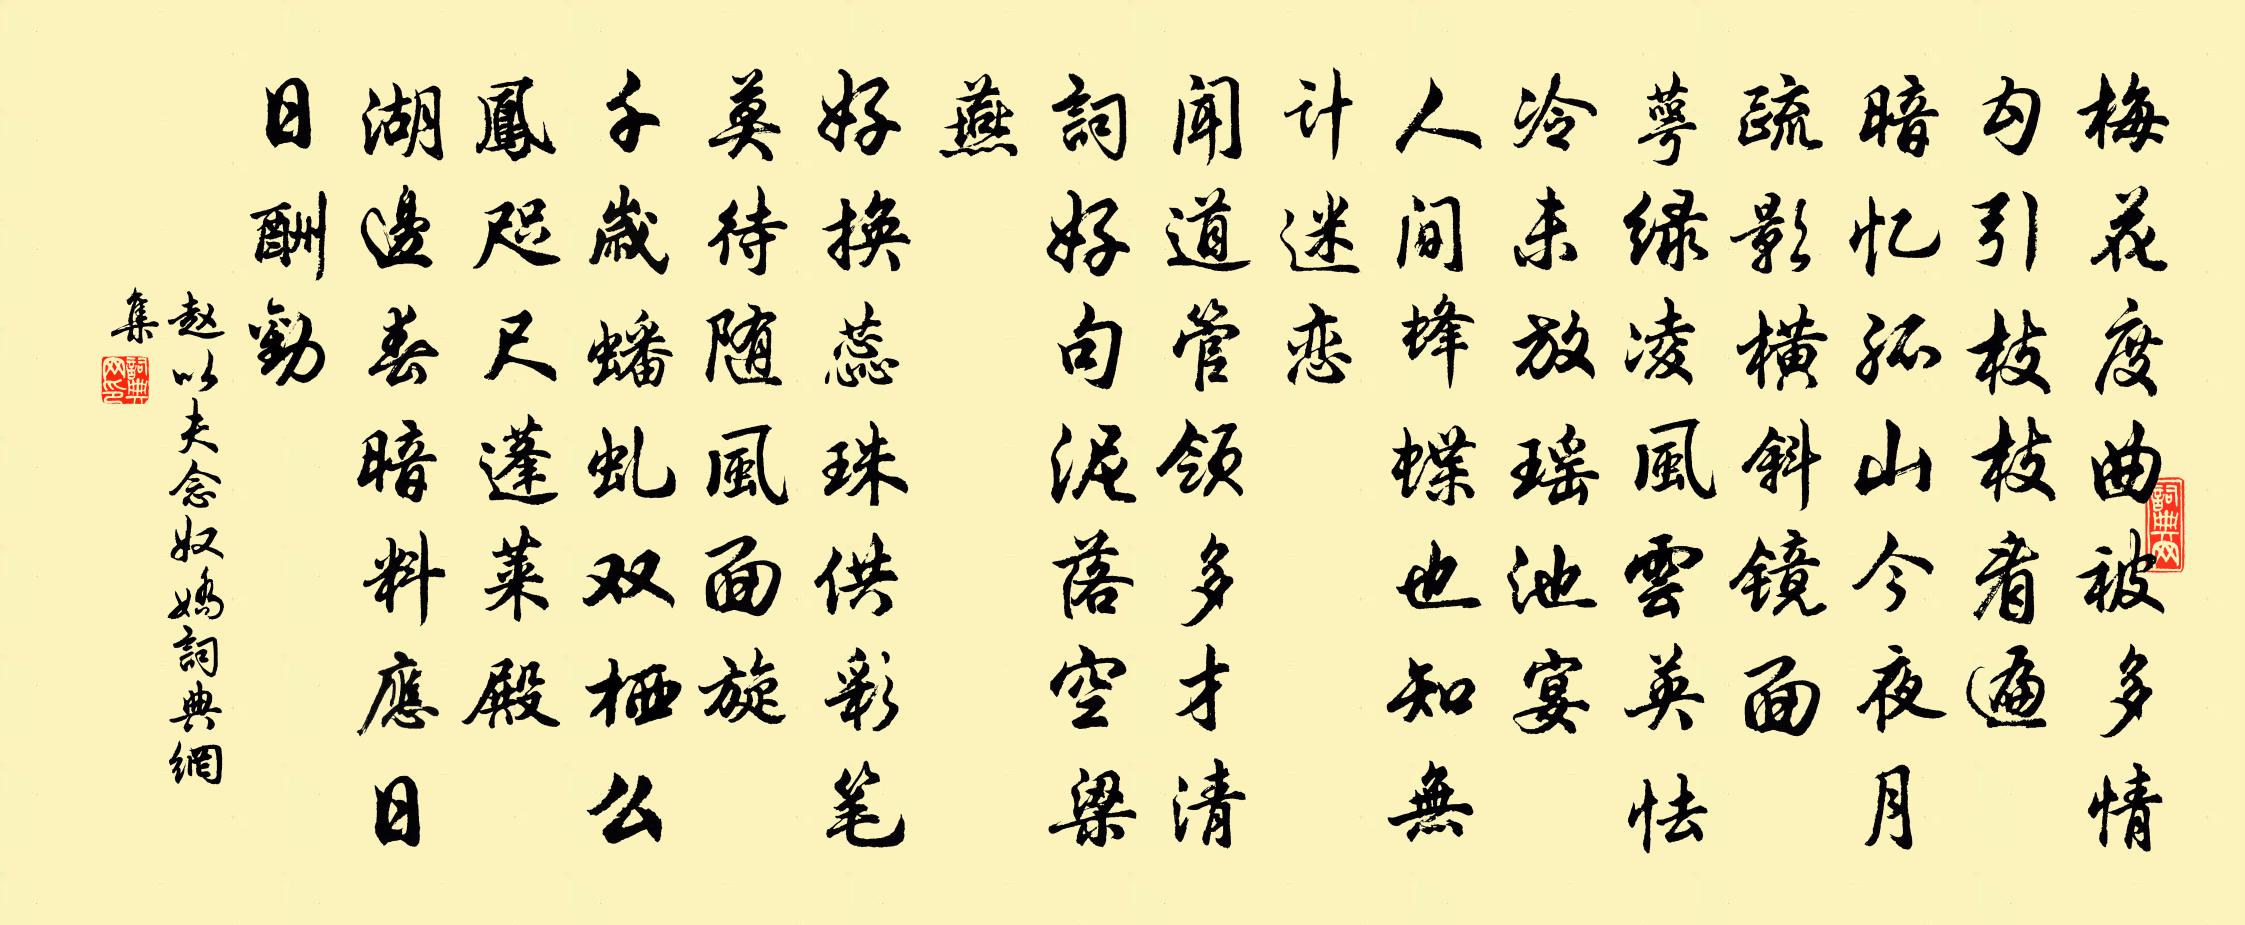 梅花度曲被多情
勾引枝枝看遍
暗忆孤山今夜月
疏影横斜镜面
萼绿凌風雲英怯
冷未放瑶池宴
人间蜂蝶也知無
计迷恋
闻道管领多才清
詞好句泥落空梁
燕
好换蕊珠供彩笔
莫待随風面旋
千歲蟠虬双栖么
鳳咫尺蓬莱殿
湖邊春暗料應日
日酬勸
赵以夫念奴嬌詞典網
集
詞典网
詞典网印